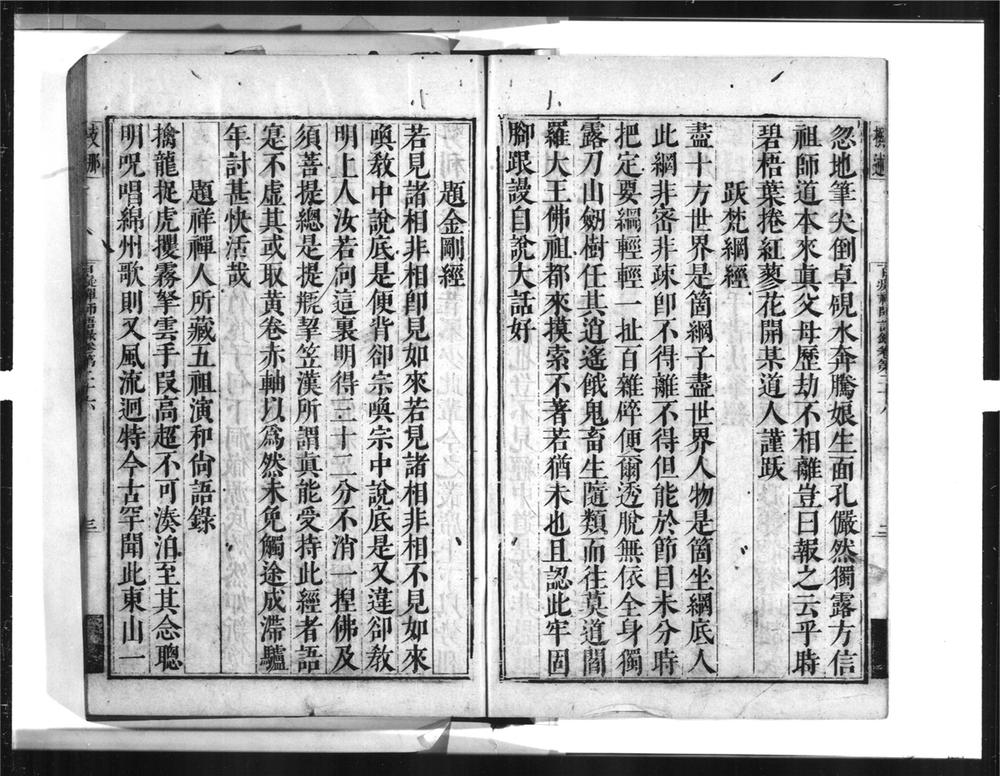 忽地筆尖倒卓硯水奔騰娘生面孔儼然獨露方信
祖師道本來真父母歷劫不相離豈曰報之云乎時
碧梧葉捲紅蓼花開某道人謹跋
跋梵網經
盡十方世界是箇網子盡世界人物是箇坐網底人
此網非密非疎即不得離不得但能於節目未分時
把定要綱輕輕一扯百雜碎便爾透脫無依全身獨
露刀山劒樹任其逍遙餓鬼畜生隨類而往莫道閻
羅大王佛祖都來摸索不著若猶未也且認此牢固
腳跟謾自說大話好
題金剛經
若見諸相非相即見如來若見諸相非相不見如來
喚教中說底是便背卻宗喚宗中說底是又違卻教
明上人汝若向這裏明得三十二分不消一揑佛及
須菩提總是提瓶挈笠漢所謂真能受持此經者語
寔不虛其或取黃卷赤軸以為然未免觸途成滯驢
年討甚快活哉
題祥禪人所藏五祖演和尙語錄
擒龍捉虎攫霧拏雲手段高超不可湊泊至其念聰
明呪唱綿州歌則又風流迥特今古罕聞此東山一